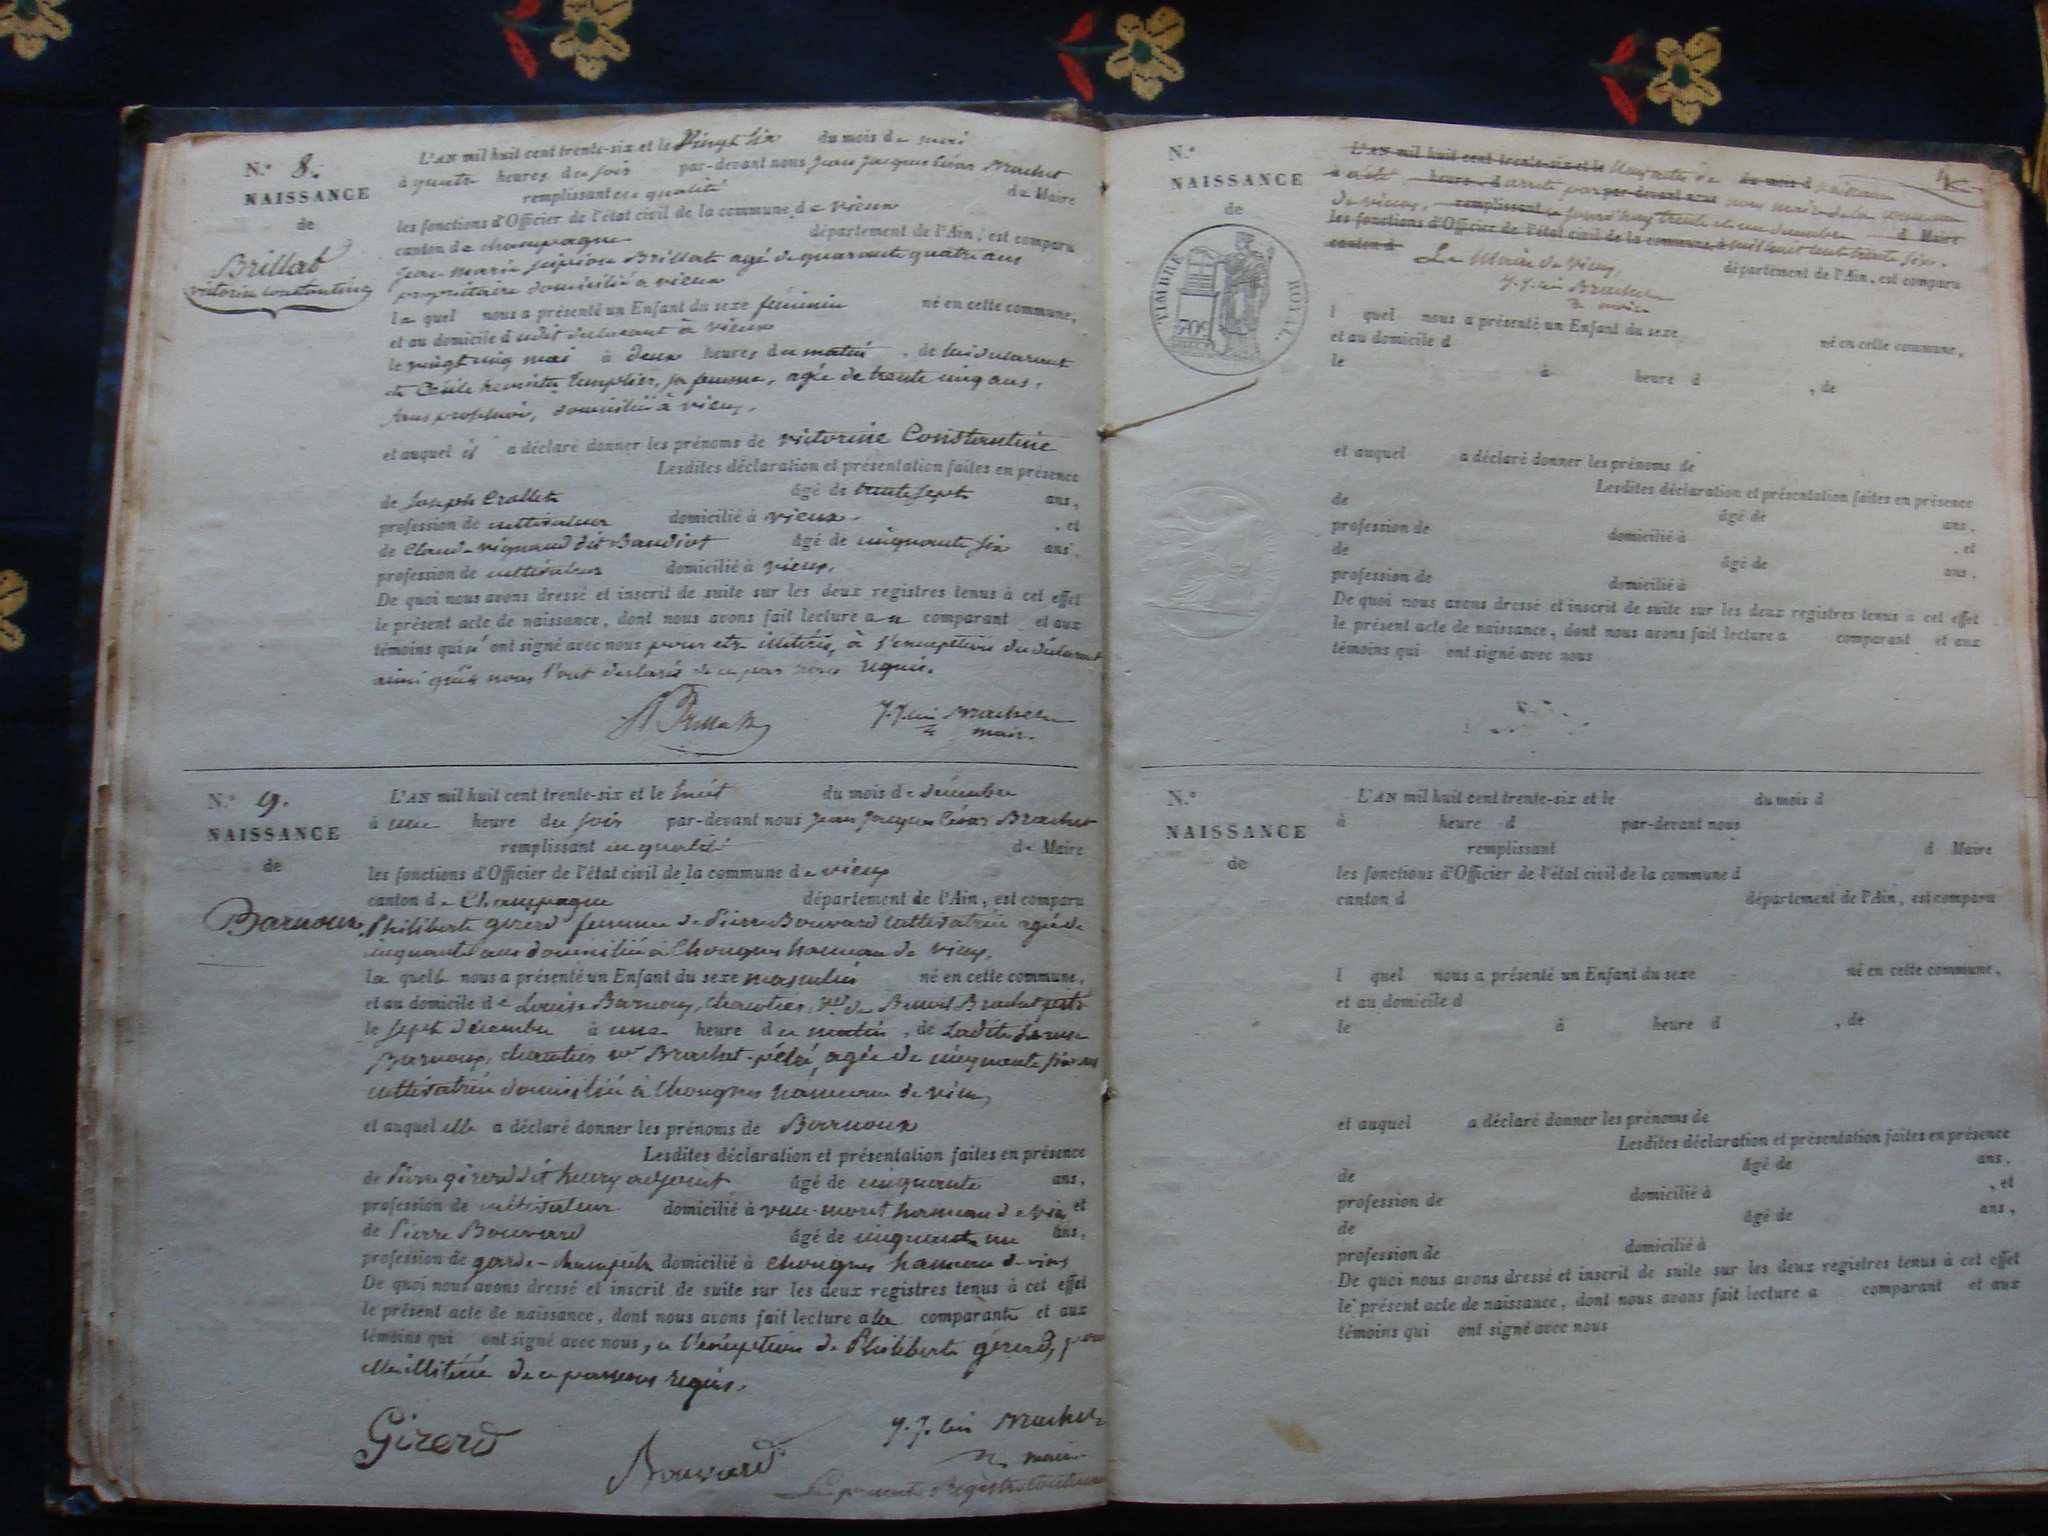 N.° 8.
NAISSANCE
de
Brillat
victorine constantine
L'AN mil huit cent trente-six et le vingt six du mois de mai
à quatre heures du soir par-devant nous Jean Jacques César Brachet
remplissant en qualité de Maire
les fonctions d'Officier de l'état civil de la commune de vieux
canton de champagne département de l'Ain, est comparu
Jean Marie Scipion Brillat agé de quarante quatre ans
propriétaire domicilié à vieux
le quel nous a présenté un Enfant du sexe féminin né en cette commune,
et au domicile dudit déclarant à vieux
le vingt cinq mai à deux heures du matin, de lui déclarant
et Cécile templier, sa femme, agée de trente cinq ans,
sans profession, domiciliée à vieux,
et auquel il a déclaré donner les prénoms de victorine Constantine
Lesdites déclaration et présentation faites en présence
de Joseph Crollet âgé de trente sept ans,
profession de cultivateur domicilié à vieux , et
de Claude vignand dit Baudiot âgé de cinquante six ans,
profession de cultivateur domicilié à vieux,
De quoi nous avons dressé et inscrit de suite sur les deux registres tenus à cet effet
le présent acte de naissance, dont nous avons fait lecture au comparant et aux
témoins qui n'ont signé avec nous pour etre illitérés, à l'exception du déclarant
ainsi qu'ils nous l'ont déclaré de ce par nous requis.
Brillat
J. J. César Brachet
maire
N.° 9.
NAISSANCE
de
Barnoux
L'AN mil huit cent trente-six et le huit du mois de décembre
à une heure du soir par-devant nous Jean Jacques César Brachet
remplissant en qualité de Maire
les fonctions d'Officier de l'état civil de la commune de vieux
canton de Champagne département de l'Ain, est comparu
Philiberte girerd femme de Pierre Bouvard cultivatrice agée de
cinquante ans domiciliée à Chongnes hameau de vieux,
la quelle nous a présenté un Enfant du sexe masculin né en cette commune,
et au domicile de Louise Barnoux, charotier, v.e de Benoit Brachet
le sept décembre à une heure du matin, de Ladite Louise
Barnoux, charotier v.e Brachet, agée de cinquante six ans
cultivatrice domiciliée à Chongnes hameau de vieux
et auquel elle a déclaré donner les prénoms de Barnoux
Lesdites déclaration et présentation faites en présence
de Pierre girerd dit henry adjoint âgé de cinquante ans,
profession de cultivateur domicilié à hameau de vieux et
de Pierre Bouvard âgé de cinquante un ans,
profession de garde-champêtre domicilié à Chongnes hameau de vieux
De quoi nous avons dressé et inscrit de suite sur les deux registres tenus à cet effet
le présent acte de naissance, dont nous avons fait lecture à la comparante et aux
témoins qui ont signé avec nous, à l'exception de Philiberte girerd, pour
etre illitérée de ce par nous requis.
Girerd
Bouvard
J. J. César Brachet
maire
Le présent Registre contenant
N.°
NAISSANCE
de
TIMBRE ROYAL
L'AN mil huit cent trente-six et le du mois d
à arrêté par par-devant nous nous maire de la commune
de vieux, remplissant ce jourd'huy trente et un décembre d Maire
les fonctions d'Officier de l'état civil de la commune d mil huit cent trente six.
canton d Le Maire de vieux, département de l'Ain, est comparu
J. J. César Brachet
maire
l quel nous a présenté un Enfant du sexe né en cette commune,
et au domicile d
le à heure d , de
et auquel a déclaré donner les prénoms de
Lesdites déclaration et présentation faites en présence
de âgé de ans,
profession de domicilié à , et
de âgé de ans,
profession de domicilié à
De quoi nous avons dressé et inscrit de suite sur les deux registres tenus à cet effet
le présent acte de naissance, dont nous avons fait lecture a comparant et aux
témoins qui ont signé avec nous
N.°
NAISSANCE
de
L'AN mil huit cent trente-six et le du mois d
à heure d par-devant nous
remplissant d Maire
les fonctions d'Officier de l'état civil de la commune d
canton d département de l'Ain, est comparu
l quel nous a présenté un Enfant du sexe né en cette commune,
et au domicile d
le à heure d , de
et auquel a déclaré donner les prénoms de
Lesdites déclaration et présentation faites en présence
de âgé de ans,
profession de domicilié à , et
de âgé de ans,
profession de domicilié à
De quoi nous avons dressé et inscrit de suite sur les deux registres tenus à cet effet
le présent acte de naissance, dont nous avons fait lecture a comparant et aux
témoins qui ont signé avec nous